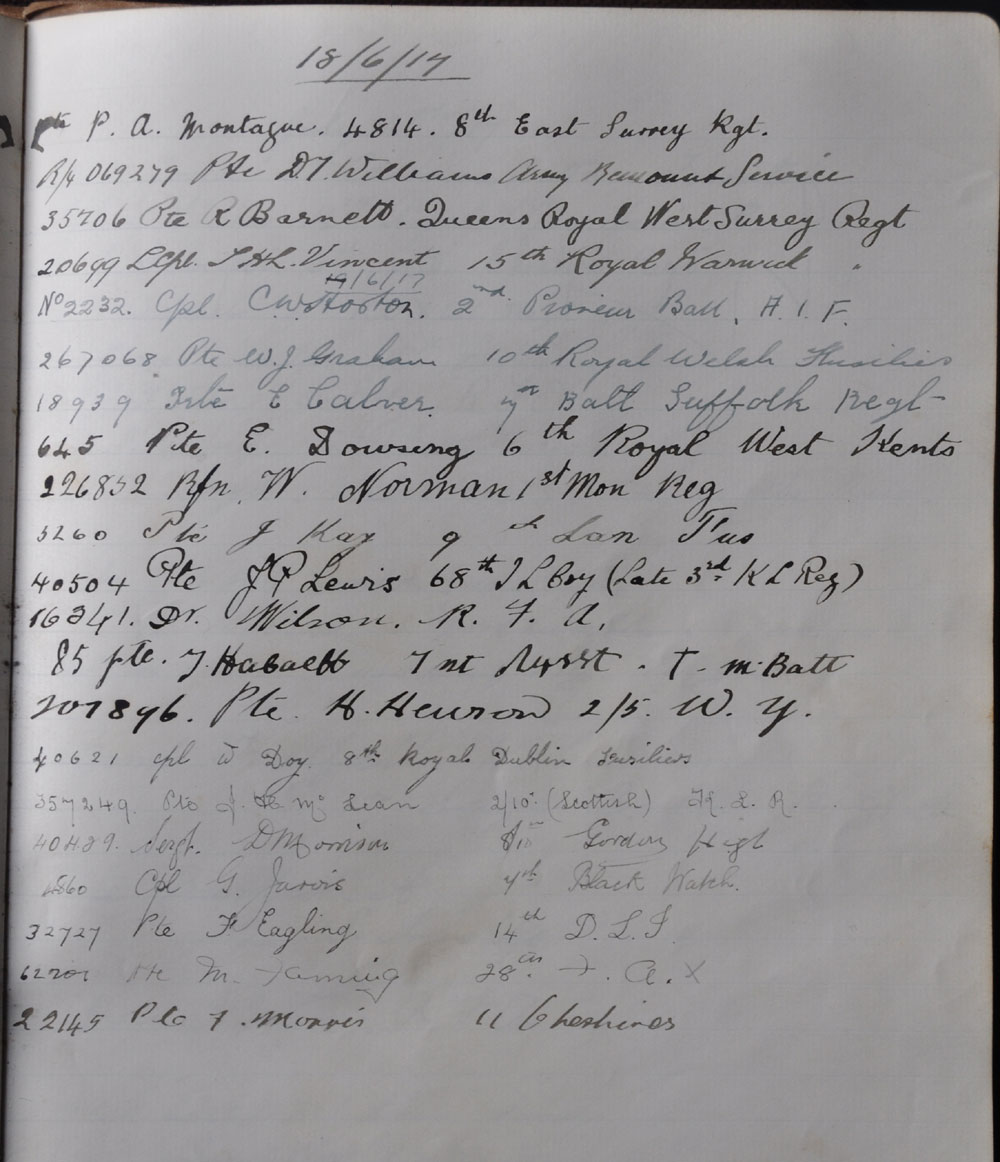 18/6/17
Pte P. A. Montague. 4814. 8th East Surrey Rgt.
R/4 069279 Pte D.T. Williams Army Remount Service
35706 Pte R Barnett. Queens Royal West Surrey Regt
20699 LCpl. Vincent 15th Royal Warwick "
19/6/17
No 2232. Cpl. C.W. Horton. 2nd Pioneer Batt, A. I. F.
267068. Pte W.J. Graham 10th Royal Welsh Fusiliers
18939 Pte E Calver. 7th Batt Suffolk Regt
645 Pte E. Dowsing 6th Royal West Kents
226832 Rfn W. Norman 1st Mon Reg
3260 Pte J Kay 9th Lan Fus
40504 Pte J P Lewis 68th T L Coy (Late 3rd K L Reg)
16341. Dr. Wilson. R. F. A.
85 pte. T. . T. M. Batt
207896. Pte. H. Hewson 2/5. W. Y.
40621 cpl W Doy. 8th Royal Dublin Fusiliers
357249. Pte J. McLean 2/10th (Scottish) K. L. R.
40439. Sergt. D Morrison 8/10 Gordon Highl
Cpl G. Jarvis 4th Black Watch.
32727 Pte F Eagling 14th D. L. I.
Pte M. Fanning 28th F. A. X
22145 Pte F. Morris 11 Cheshires